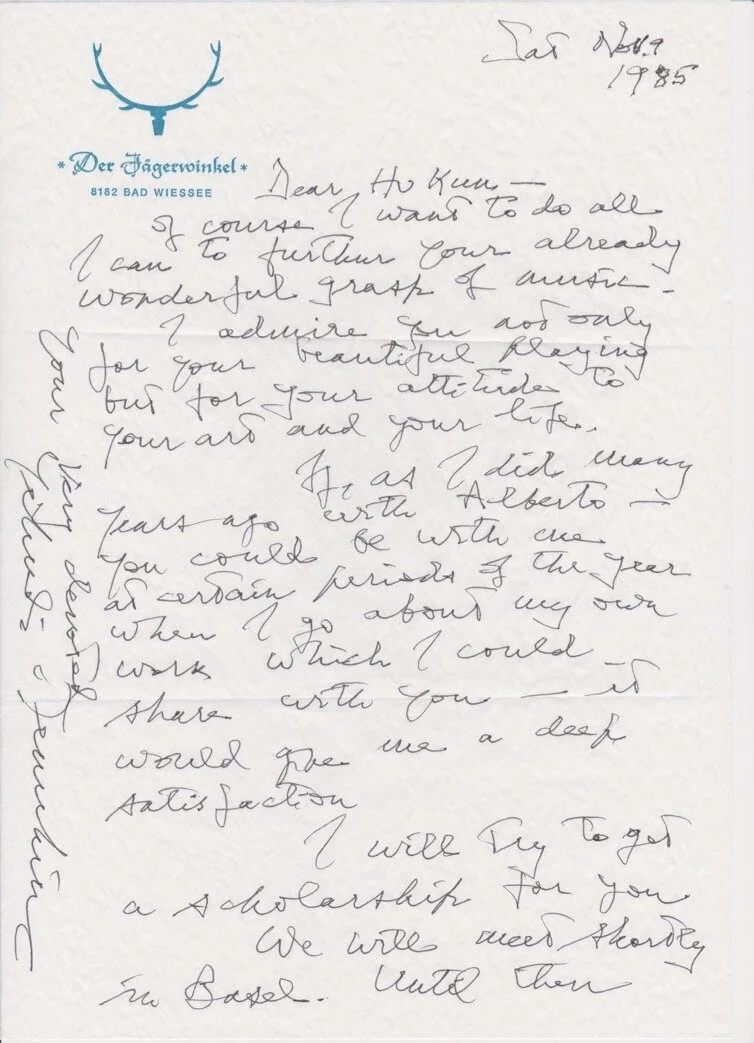 Sat Nov. 9
1985
* Der Jägerwinkel *
8182 BAD WIESSEE
Dear Hu Kun —
of course I want to do all
I can to further your already
wonderful grasp of music –
I admire you not only
for your beautiful playing
but for your attitude to
your art and your life.
If, as I did many
years ago with Alberto —
you could be with me
at certain periods of the year
when I go about my own
work which I could
share with you — it
would give me a deep
satisfaction
I will try to get
a scholarship for you
We will meet shortly
in Basel. Until then
your very devoted
Yehudi Menuhin